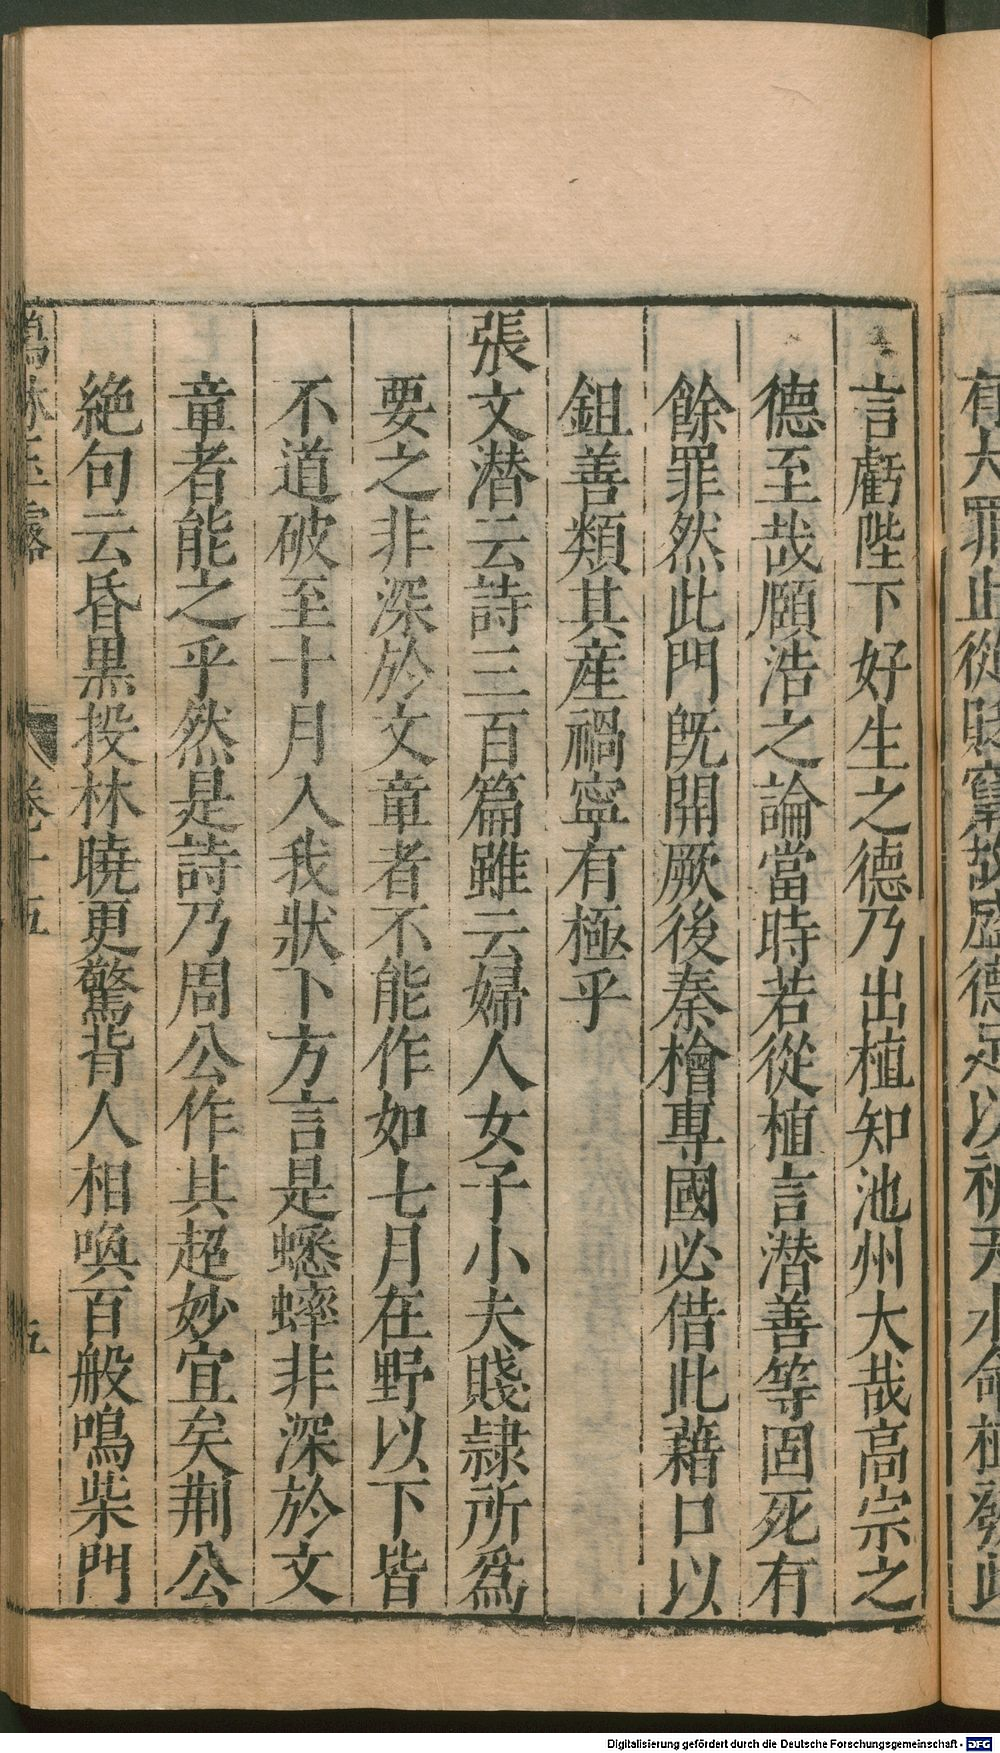 言虧陛下好生之德乃出植知池州大哉高宗之
德至哉頤浩之論當時若從植言潜善等固死有
餘罪然此門旣開厥後秦檜專國必借此藉口以
鉏善類其産禍寧有極乎
張文潜云詩三百篇雖云婦人女子小夫賤隷所爲
要之非深於文章者不能作如七月在野以下皆
不道破至十月入我狀下方言是蟋蟀非深於文
章者能之乎然是詩乃周公作其超妙宜矣荆公
絶句云昏黒投林曉更驚背人相喚百般鳴柴門
卷十五
五
Digitalisierung gefördert durch die Deutsche Forschungsgemeinschaft - DFG